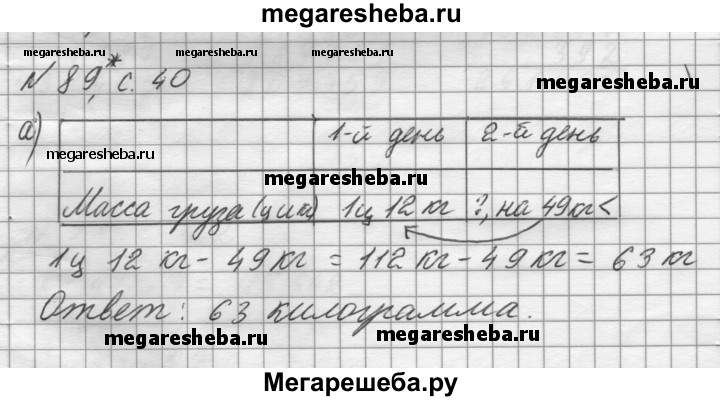 megaresheba.ru
megaresheba.ru megaresheba.ru megaresheba.ru
№ 89* с. 40
megaresheba.ru
а) 1-й день 2-й день
megaresheba.ru
megaresheba.ru
Масса груза (ц и кг) 1ц 12 кг ?, на 49кг<
1ц 12 кг - 49кг = 112кг - 49кг = 63 кг
Ответ: 63 килограмма.
megaresheba.ru megaresheba.ru
Мегарешеба.ру